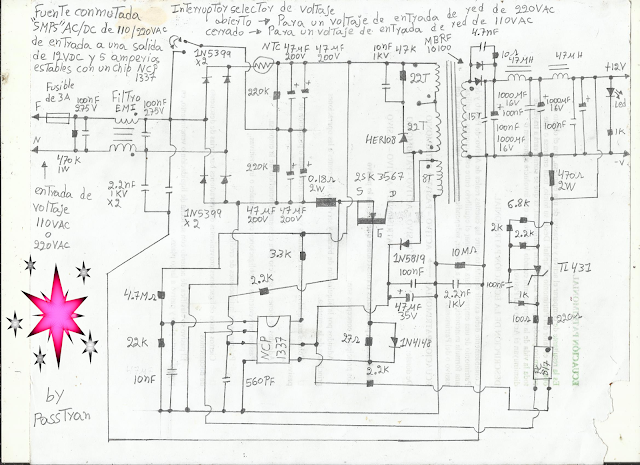 Fuente conmutada
"SMPS" AC/DC de 110/220VAC
de entrada a una salida
de 12VDC y 5 amperios
estables con un chip NCP
1337
Interruptor selector de voltaje
abierto → Para un voltaje de entrada de red de 220VAC
cerrado → Para un voltaje de entrada de red de 110VAC
Fusible
de 3A
100nF
275V
Filtro
EMI
100nF
275V
F
N
470K
1W
2.2nF
1KV
x2
entrada de
voltaje
110VAC
o
220VAC
1N5399
x2
NTC
47µF
200V
47µF
200V
220K
220K
1N5399
x2
47µF
200V
47µF
200V
0.18Ω
2W
10nF
1KV
47K
22T
22T
HER108
8T
15T
MBRF
10100
4.7nF
10Ω
47µH
47µH
1000µF
16V
100nF
100nF
1000µF
16V
1000µF
16V
100nF
+12V
Led
1K
-V
2SK3567
S
D
G
3.3K
2.2K
4.7MΩ
22K
10nF
560PF
NCP
1337
1N5819
100nF
47µF
35V
10MΩ
2.2nF
1KV
27Ω
1N4148
2.2K
470Ω
2W
6.8K
2K
2.2K
TL431
100nF
1K
100Ω
220Ω
817
by
PassTyan